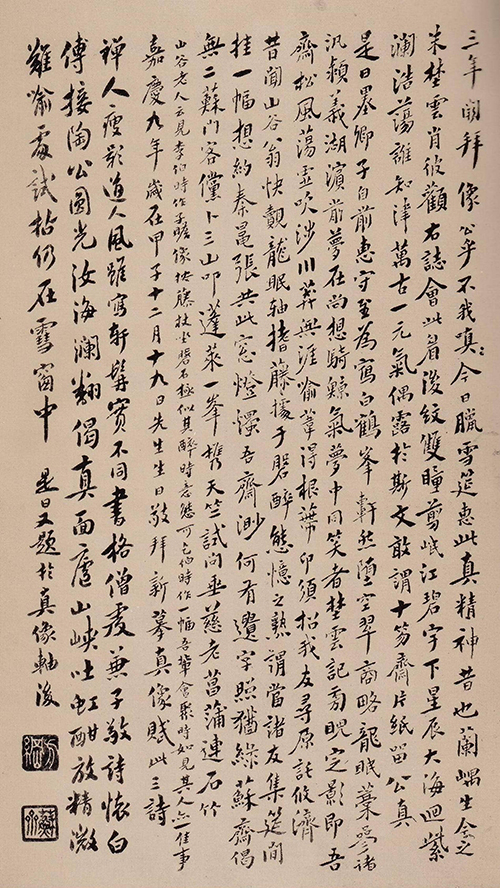 三年閒拜像公乎不我嗔今日臘雪筵惠此真精神昔也蘭嵎生念之
朱楚雲肖彼顴右誌會此眉後紋雙瞳翦岷江碧字下星辰大海迴紫
瀾浩蕩誰知津萬古一元氣偶露於斯文敢謂十笏齋片紙留公真
是日墨卿子自前惠守至為寫白鶴峯軒然墮空翠商略龍眠葉受諸
汎潁義湖濱前夢在尚想騎鯨氣夢中同笑者楚雲記旁睨定影即吾
齋松風蕩雲吹涉川葬無涯喻葦得根葉卬須招我友尋原託攸濟
昔聞山谷翁快覩龍眠軸搘藤援手磐醉態憶之熟謂當諸友集筵間
挂一幅想約秦晁張共此窓燈燭吾齋渺何有遺字照猶綠蘇齋偈
無二蘇門客儻卜三山叩蓬萊一峯攜天竺試問垂慈老菖蒲連石竹
山谷老人云見李伯時作子瞻像按藤杖坐磐石極似其醉時意態可乞伯時作一幅吾輩會聚時如見其人亦一佳事
嘉慶九年歲在甲子十二月十九日先生生日敬拜新摹真像賦此三詩
禅人瘦影道人風雖寫軒髯實不同書格僧虔兼子敬詩懷白
傅接陶公圓光汝海瀾翻偈真面廬山峽吐虹酣放精微
難喻處試拈仍在雪窗中 是日又題於真像軸後